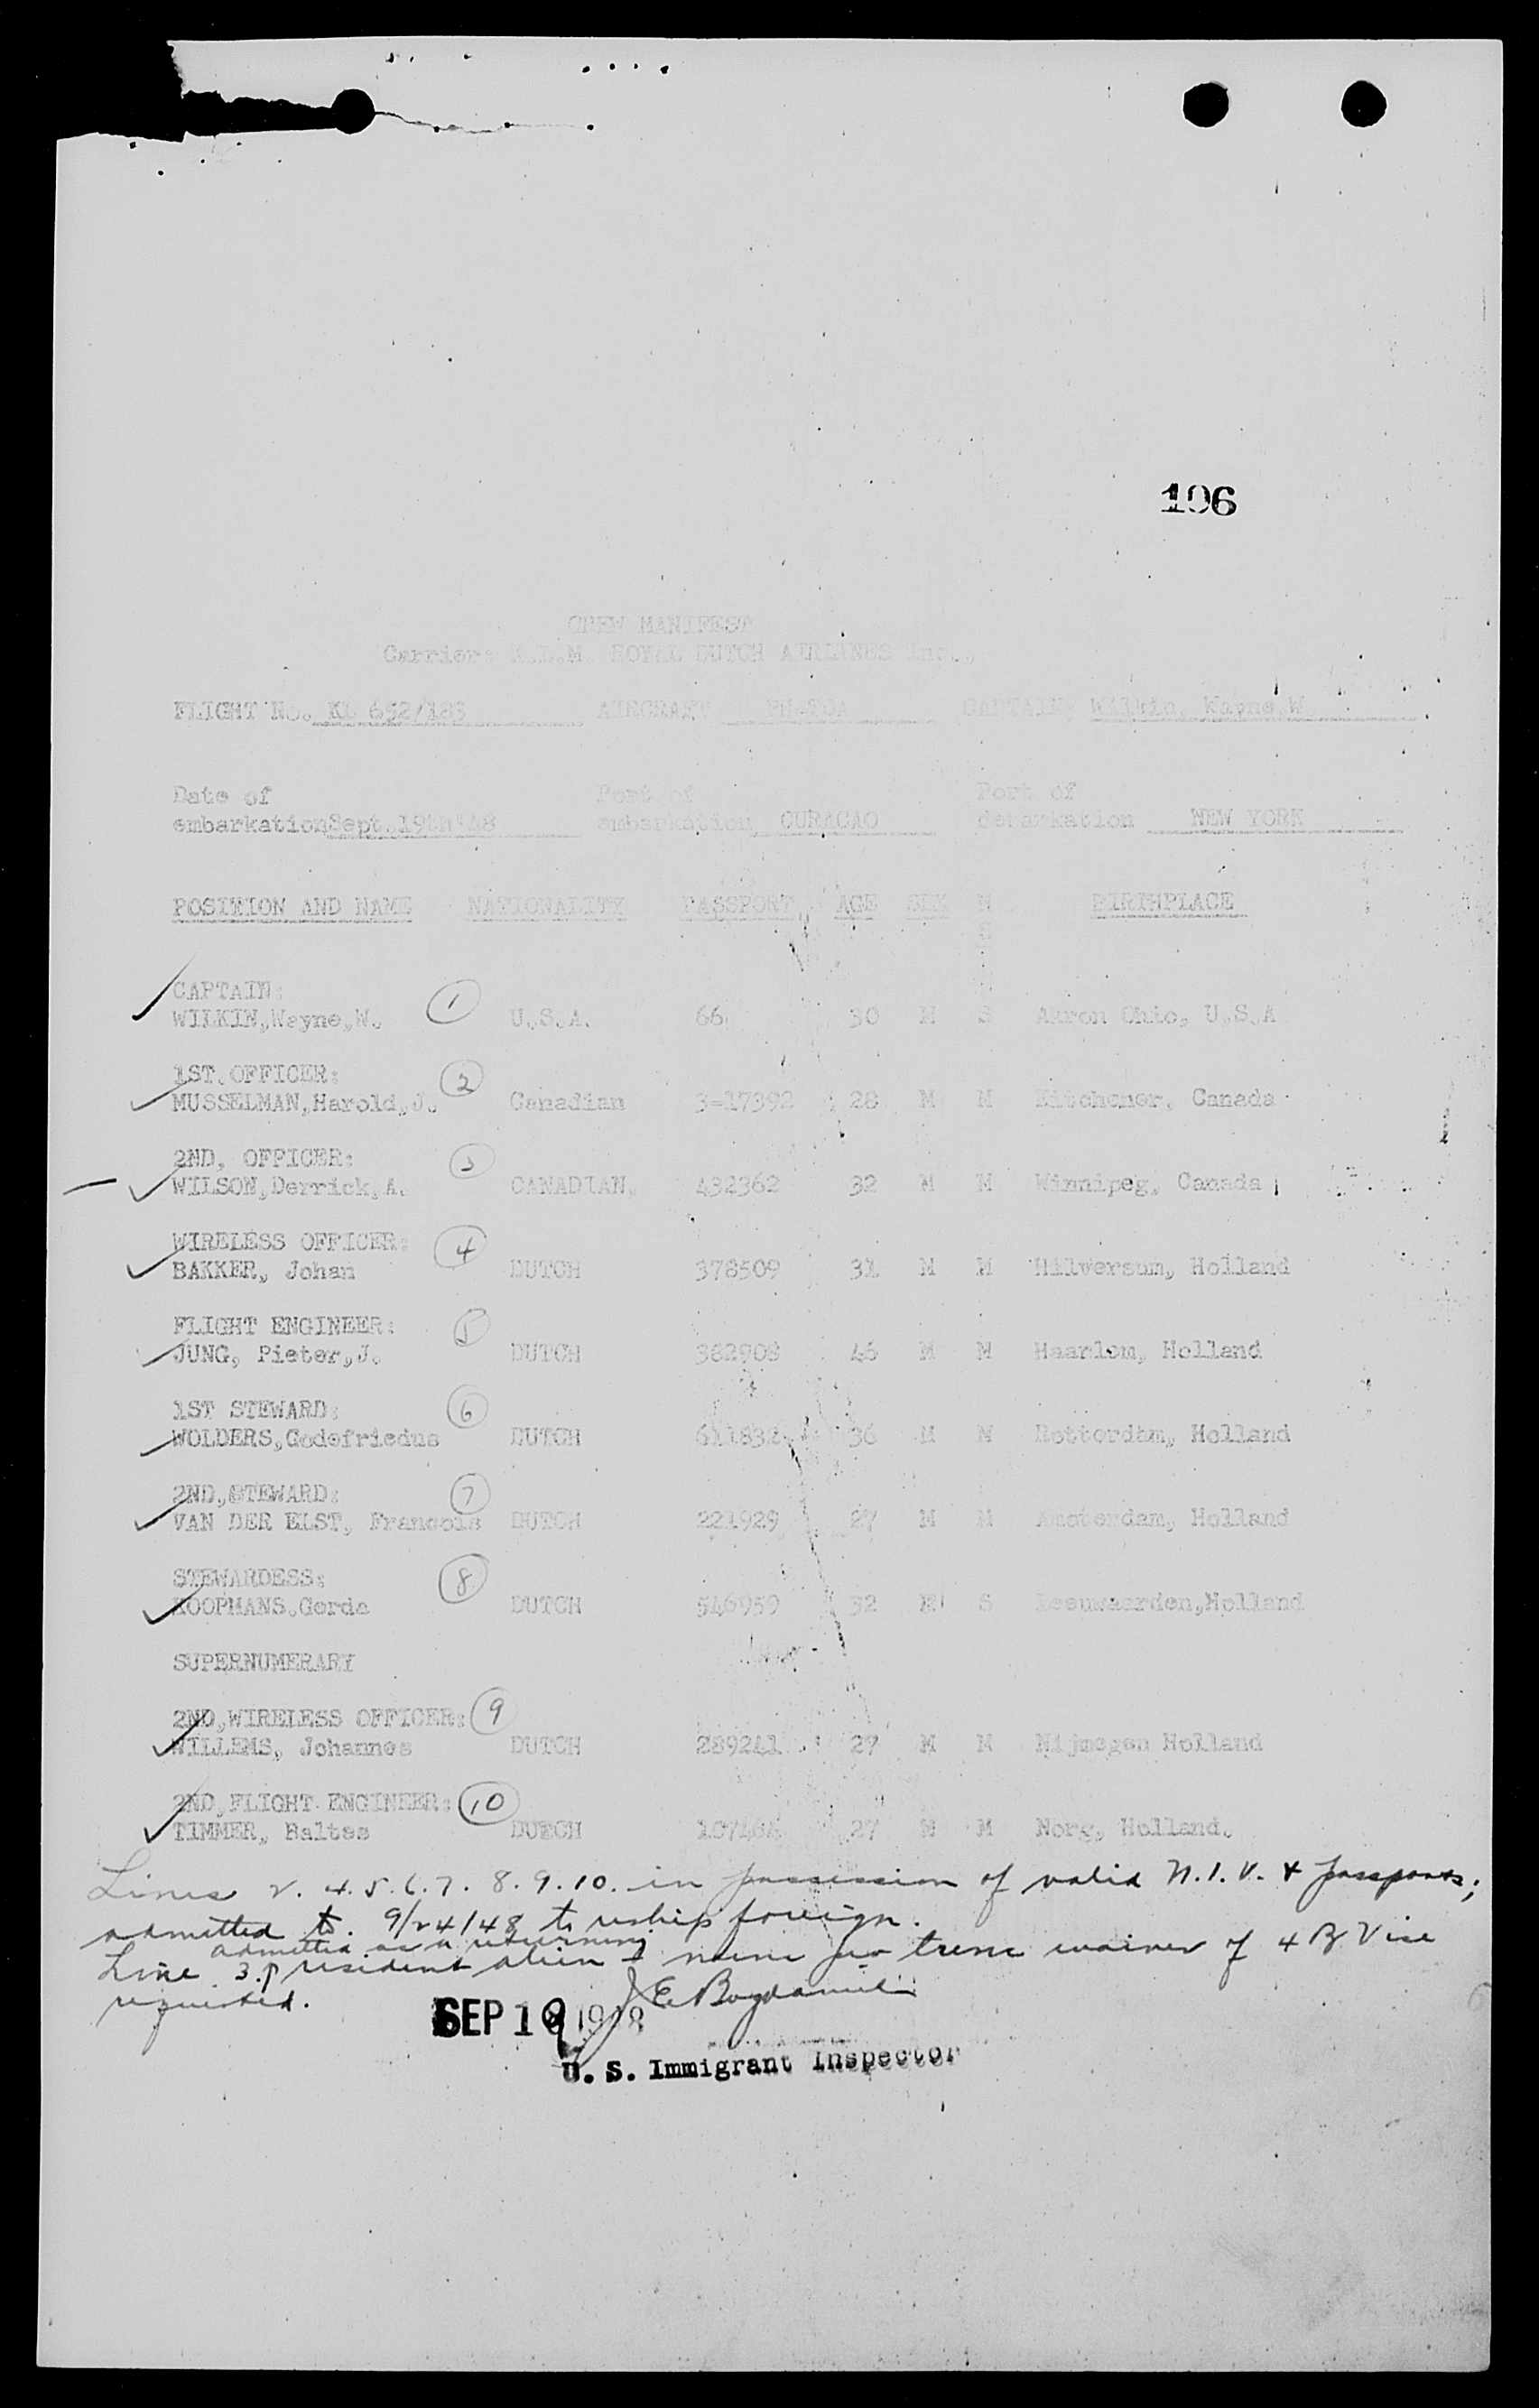 196
CREW MANIFEST
Carrier: K.L.M. ROYAL DUTCH AIRLINES Inc.,
FLIGHT No. KL 652/183 AIRCRAFT CAPTAIN Wilkin, Wayne,W.
Date of Port of Port of
embarkation Sept.19th'48 embarkation CURACAO debarkation NEW YORK
POSITION AND NAME NATIONALITY PASSPORT AGE SEX M BIRTHPLACE
S
CAPTAIN:
WILKIN,Wayne,W. 1 U.S.A. 66 30 M S Akron Ohio, U.S.A
1ST.OFFICER: 2
MUSSELMAN,Harold,J. Canadian 3=17392 28 M M Kitchener, Canada
2ND, OFFICER: 3
WILSON,Derrick,A. CANADIAN. 432362 32 M M Winnipeg, Canada
WIRELESS OFFICER: 4
BAKKER, Johan DUTCH 378509 31 M M Hilversum, Holland
FLIGHT ENGINEER: 5
JUNG, Pieter,J. DUTCH 382908 46 M M Haarlem, Holland
1ST STEWARD: 6
WOLDERS,Godefriedus DUTCH 36 M M Rotterdam, Holland
2ND,STEWARD: 7
VAN DER ELST, Francois DUTCH 221929 27 M M Amsterdam, Holland
STEWARDESS: 8
KOOPMANS,Gerda DUTCH 546959 32 S Leeuwaarden,Holland
SUPERNUMERARY
2ND,WIRELESS OFFICER: 9
WILLEMS, Johannes DUTCH 289241 27 M M Nijmegen Holland
2ND,FLIGHT ENGINEER: 10
TIMMER, Baltes DUTCH 27 M M Norg, Holland.
Lines 2. 4. 5. 6. 7. 8. 9. 10. in possession of valid N.I.V. & passports;
admitted to 9/24/48 to reship foreign.
admitted as a returning
Line 3. resident alien nunc pro tunc waiver of 4 B Vise
requested.
SEP 19 1948
U. S. Immigrant Inspector